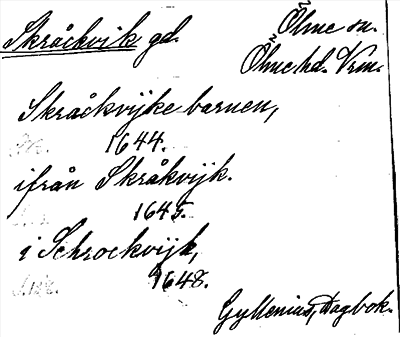 Skråckvik gd.
Ölme sn.
Ölme hd. Vrm.
Skråckvijke barnen,
1644.
ifrån Skråkvijk.
1645.
i Schrockvijk,
1648.
Gyllenius, Dagbok.